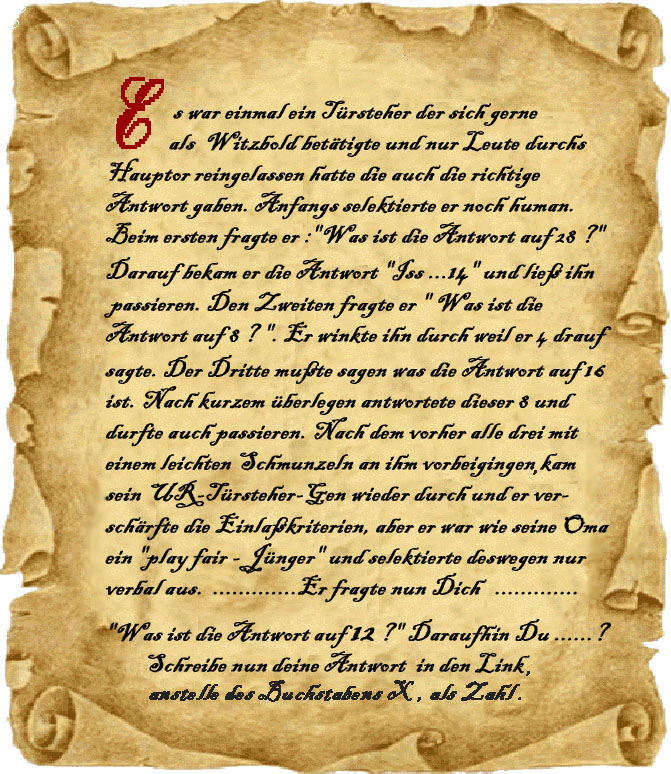 Es war einmal ein Türsteher der sich gerne
als Witzbold betätigte und nur Leute durchs
Hauptor reingelassen hatte die auch die richtige
Antwort gaben. Anfangs selektierte er noch human.
Beim ersten fragte er :"Was ist die Antwort auf 28 ?"
Darauf bekam er die Antwort "Iss ...14" und ließ ihn
passieren. Den Zweiten fragte er " Was ist die
Antwort auf 8 ? ". Er winkte ihn durch weil er 4 drauf
sagte. Der Dritte mußte sagen was die Antwort auf 16
ist. Nach kurzem überlegen antwortete dieser 8 und
durfte auch passieren. Nach dem vorher alle drei mit
einem leichten Schmunzeln an ihm vorbeigingen, kam
sein UR-Türsteher-Gen wieder durch und er ver-
schärfte die Einlaßkriterien, aber er war wie seine Oma
ein "play fair - Jünger" und selektierte deswegen nur
verbal aus. ..............Er fragte nun Dich .............
"Was ist die Antwort auf 12 ?" Daraufhin Du ...... ?
Schreibe nun deine Antwort in den Link,
anstelle des Buchstabens X , als Zahl .